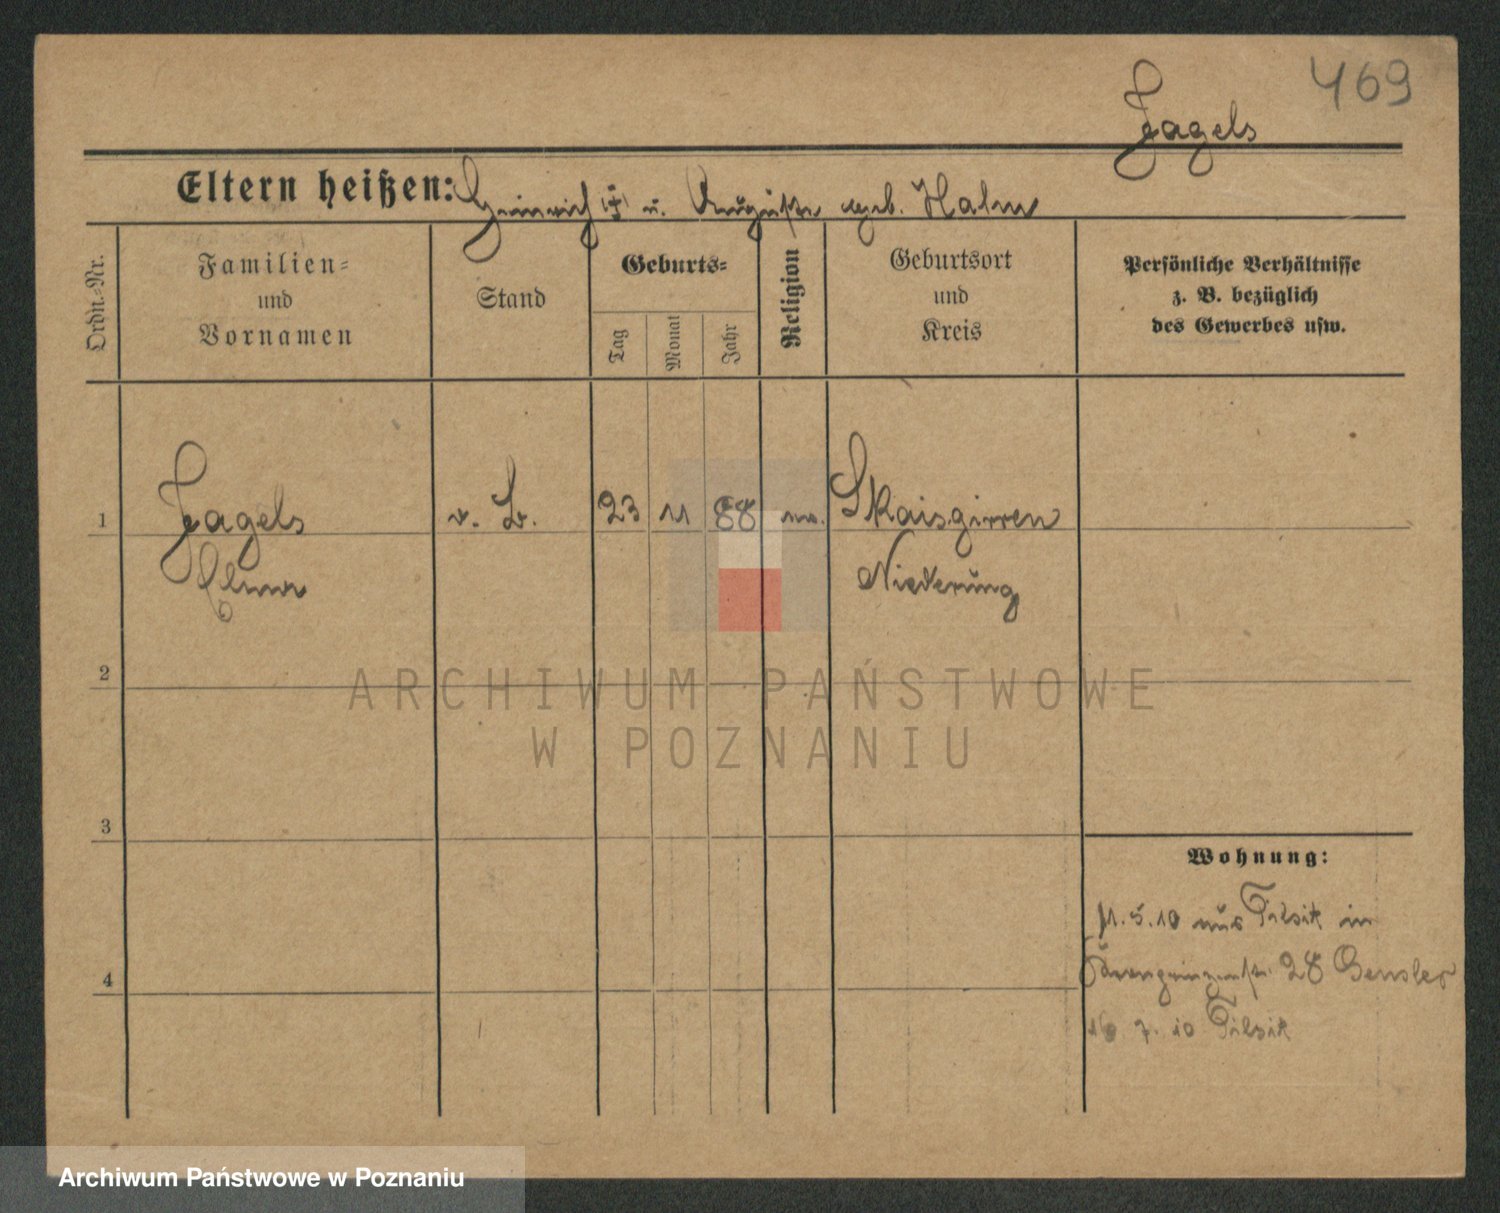 469
Jagels
Eltern heißen: Heinrich (†) u. Auguste geb. Halm
Ordn.-Nr.
Familien-
und
Vornamen
Stand
Geburts-
Tag
Monat
Jahr
Religion
Geburtsort
und
Kreis
Persönliche Verhältnisse
z. B. bezüglich
des Gewerbes usw.
1
Jagels
v. L.
23
11
88
Skaisgirren
Niederung
2
3
4
Wohnung:
5.10 aus Tilsit in
Kronprinzenstr. 28
7. 10 Tilsit
ARCHIWUM PAŃSTWOWE
W POZNANIU
Archiwum Państwowe w Poznaniu